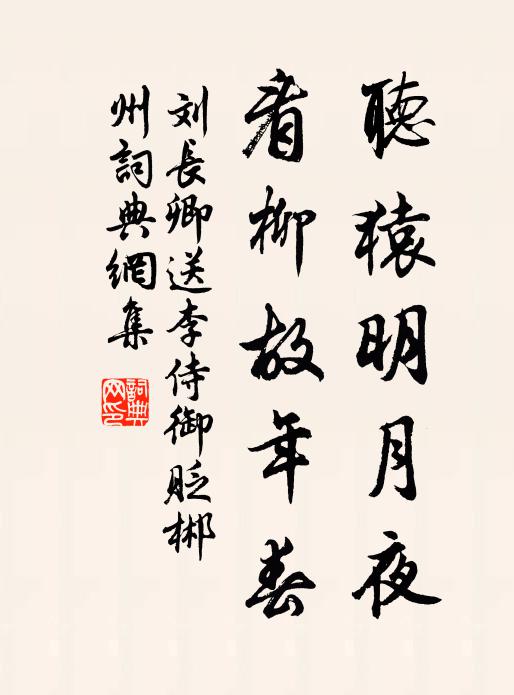 聽猿明月夜
看柳故年春
刘長卿送李侍御貶郴
州詞典網集
詞典网印